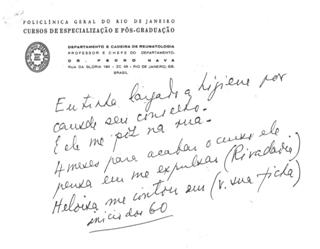 POLICLÍNICA GERAL DO RIO DE JANEIRO
CURSOS DE ESPECIALIZAÇÃO E PÓS-GRADUAÇÃO
DEPARTAMENTO E CADEIRA DE REUMATOLOGIA
PROFESSOR E CHEFE DO DEPARTAMENTO.
DR. PEDRO NAVA
RUA DA GLÓRIA 190 - ZC 45 - RIO DE JANEIRO, GB.
BRASIL
Eu tinha largado a higiene por
causa seu conselho.
E ele me pôs na rua.
4 meses para acabar o curso ele
pensa em me expulsar (Rivadavia)
Heloisa me contou em (v. sua ficha)
inicio dos 60